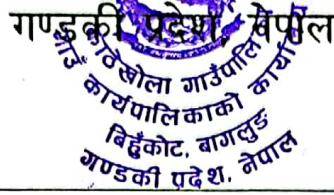 गण्डकी प्रदेश, नेपाल
काठेखोला गाउँपालिका
गाउँ कार्यपालिकाको कार्यालय
बिहुँकोट, बागलुङ
गण्डकी प्रदेश, नेपाल